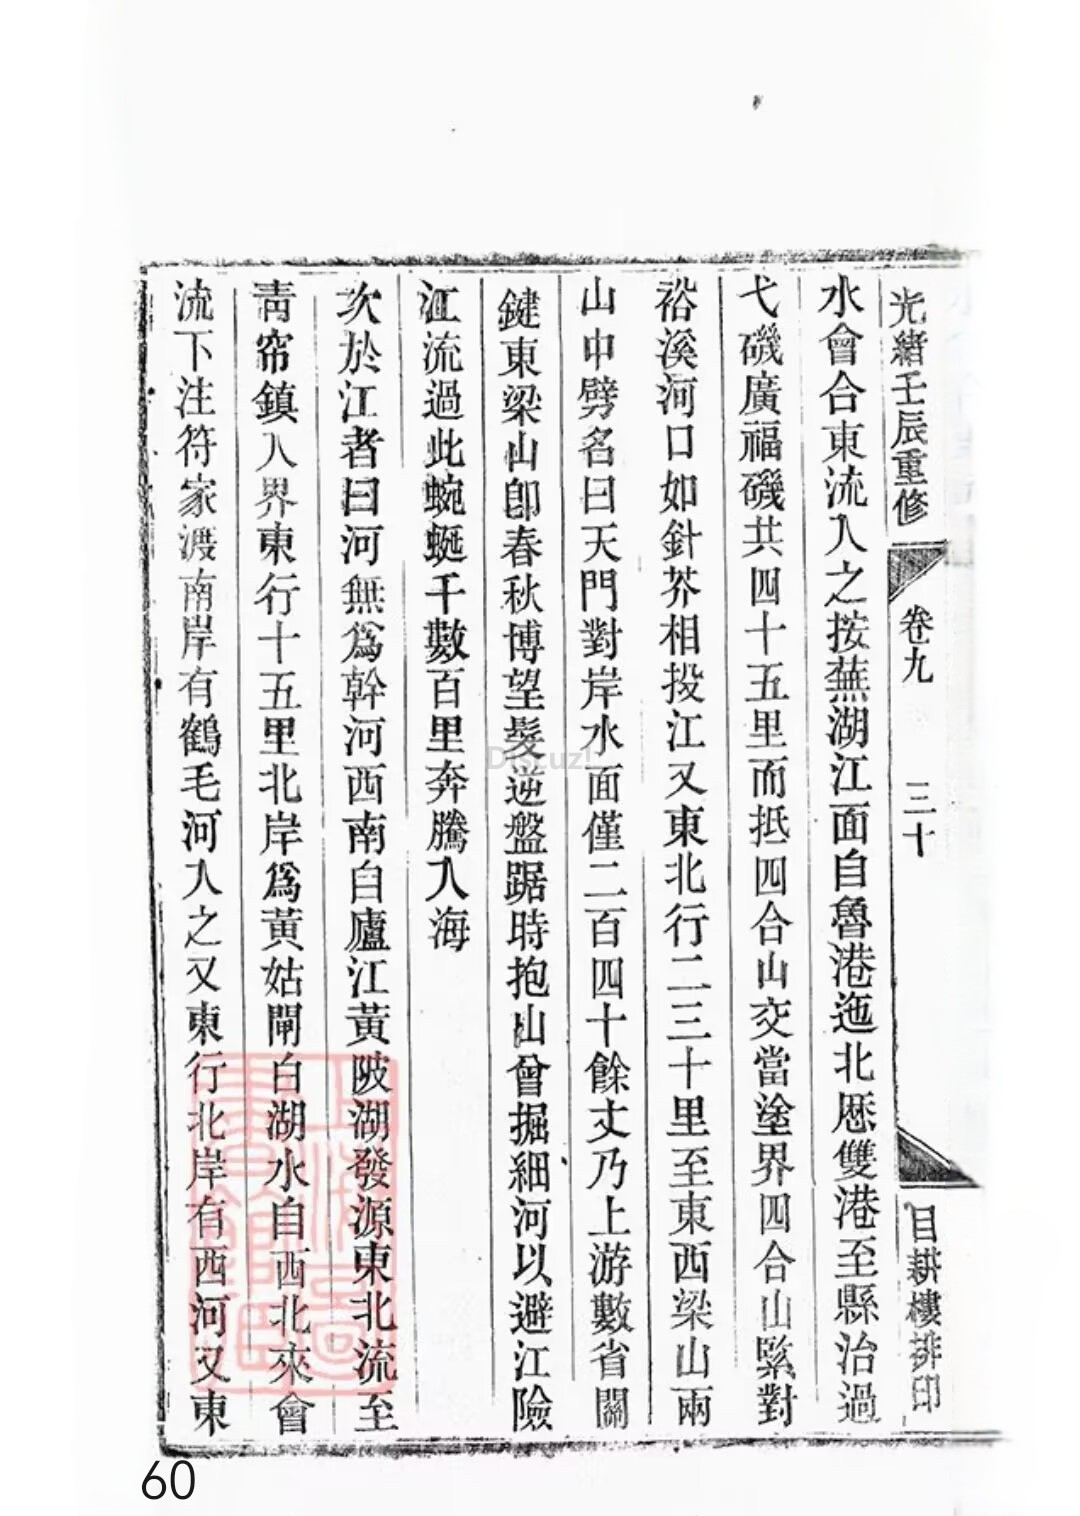 光緒壬辰重修 卷九 三十 目耕樓排印
水會合東流入之按蕪湖江面自魯港迤北厯雙港至縣治過
弋磯廣福磯共四十五里而抵四合山交當塗界四合山緊對
裕溪河口如針芥相投江又東北行二三十里至東西梁山兩
山中劈名曰天門對岸水面僅二百四十餘丈乃上游數省關
鍵東梁山卽春秋博望髮逆盤踞時抱山曾掘細河以避江險
江流過此蜿蜒千數百里奔騰入海
次於江者曰河無爲幹河西南自廬江黃陂湖發源東北流至
靑帘鎮入界東行十五里北岸爲黃姑閘白湖水自西北來會
流下注符家渡南岸有鶴毛河入之又東行北岸有西河又東
Discuz!
60